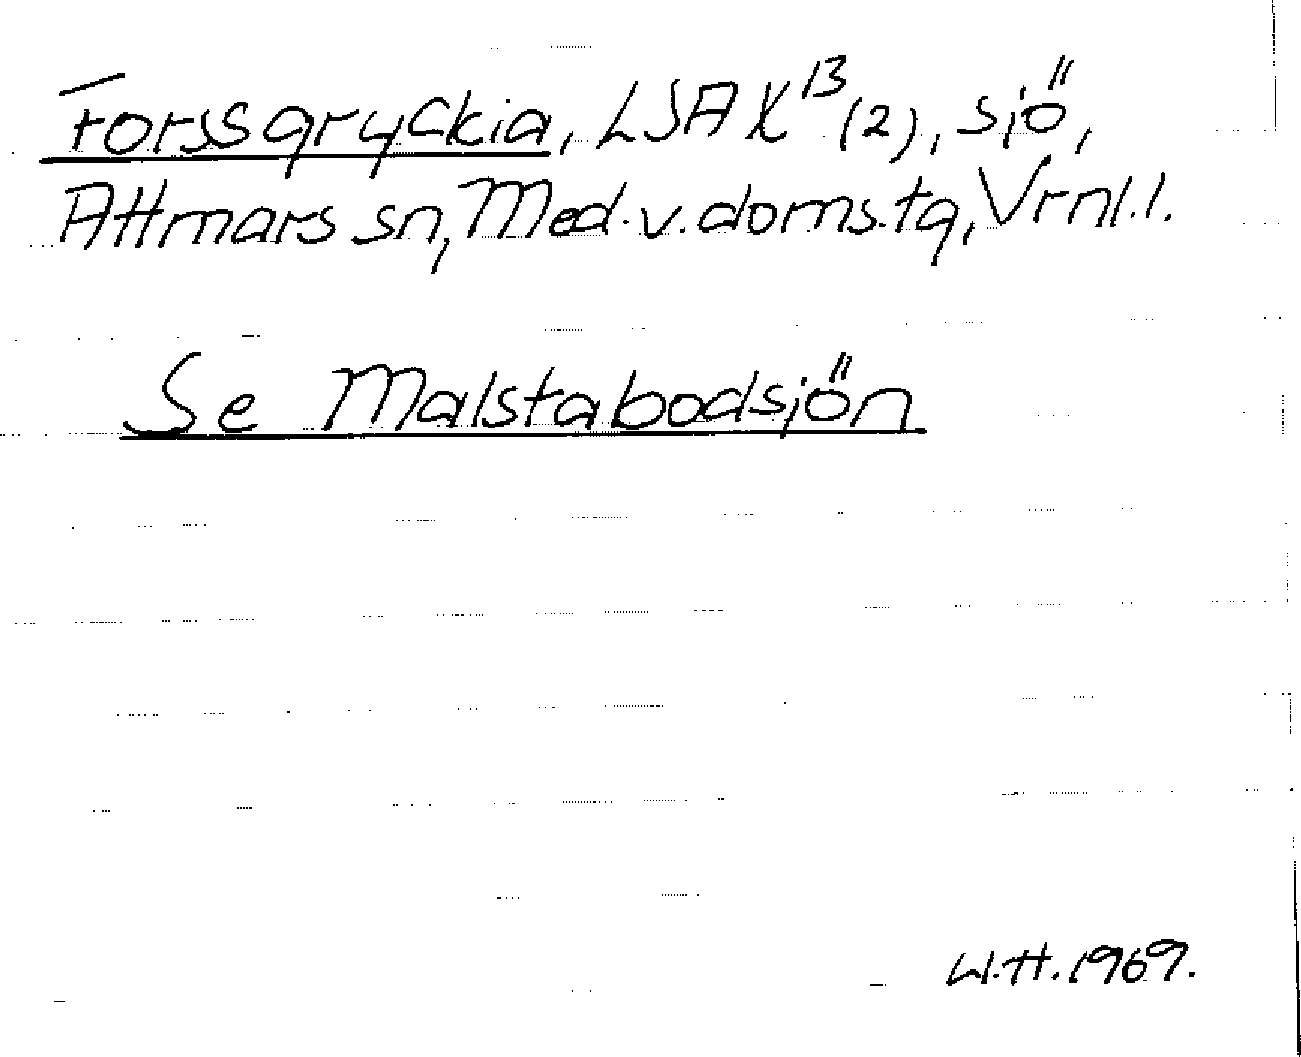 Forssgryckia, LSA X¹³ (2), sjö,
Attmars sn, Med.v.doms.tg, Vrnl.l.
Se Malstabodsjön
W.H. 1969.